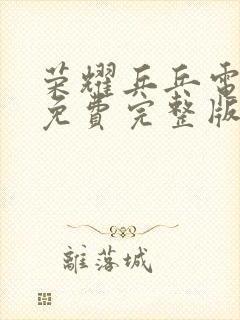 荣耀兵乒電
免費完整版
離落城